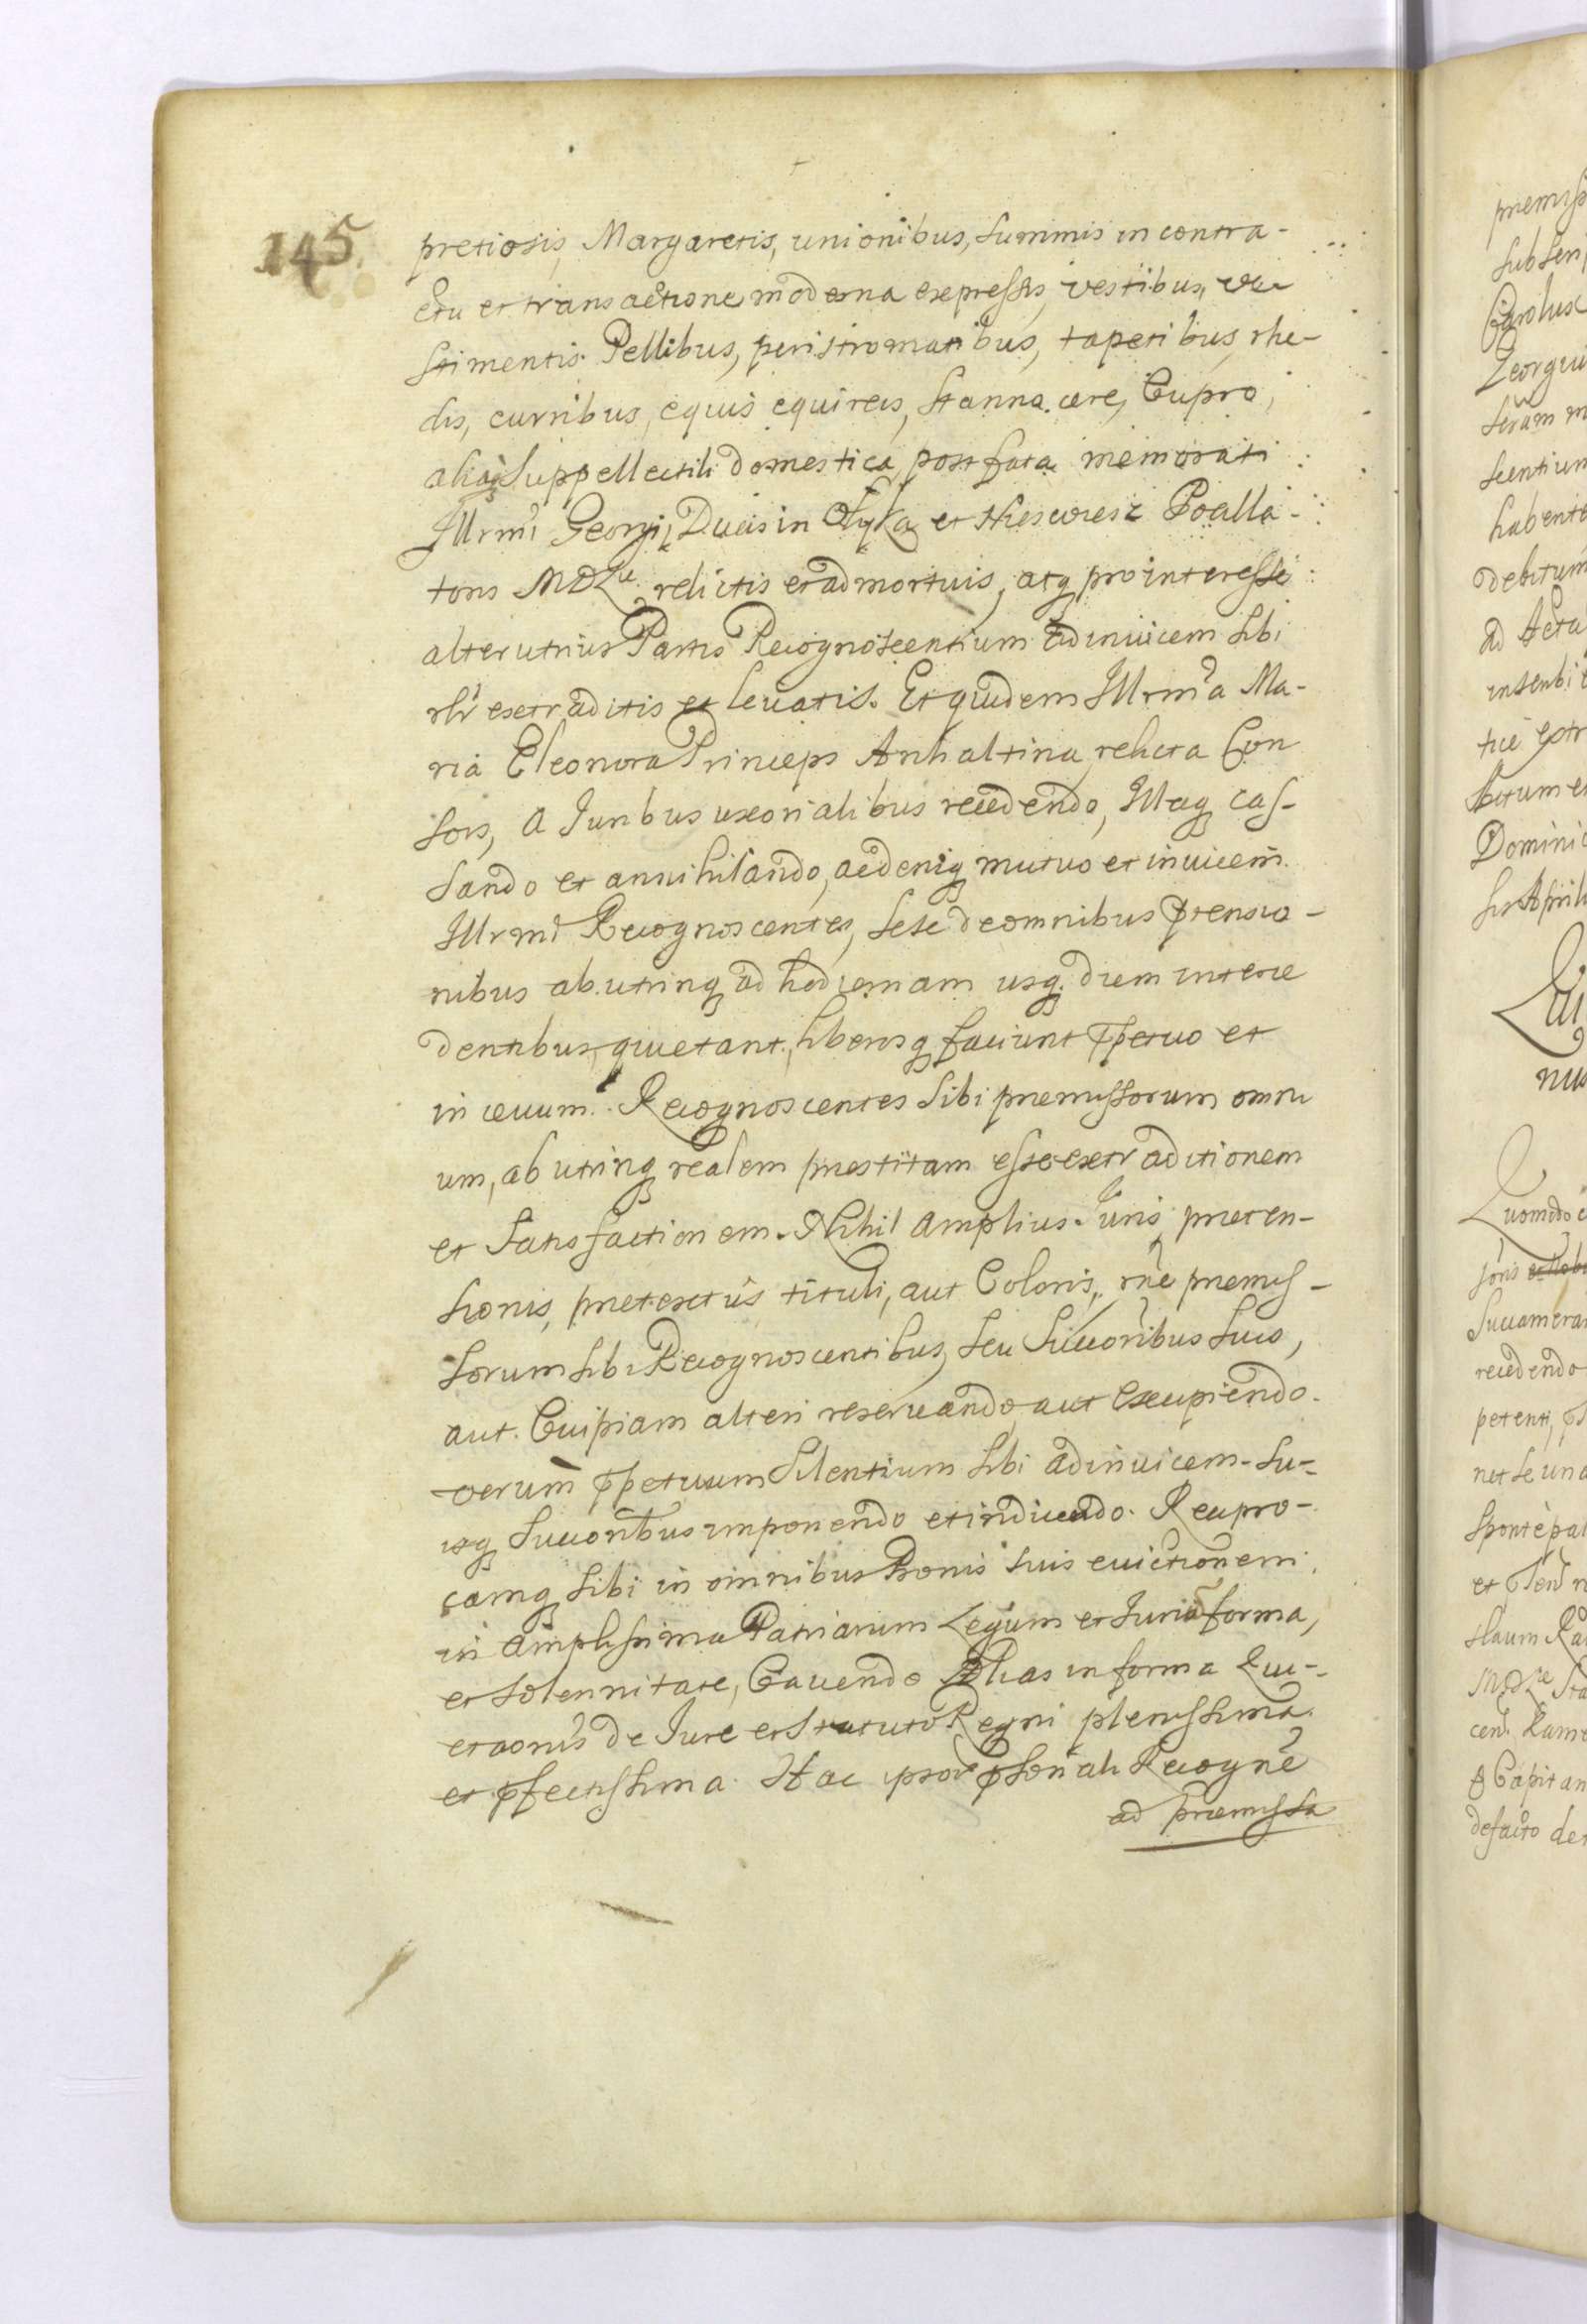 145
pretiosis, Margaretis, unionibus, summis in contra-
ctu et transactione moderna expressis, vestibus, ve
stimentis Pellibus, peristromatibus, tapetibus, rhe-
dis, curribus, equis equireis, Stanna. aere, Cupro,
aliaq3 Suppellectili domestica, post fata memorati
Illrmi Georgij Ducis in Olyka et Niesviesz Poalla-
toris MDLie relictis et admortuis, atq3 pro interesse
alterutrius Partis Recognoscentium ad invicem sibi
rlr extraditis et levatis. Et quidem Illrma Ma-
ria Eleonora Princeps Anhaltina, relicta Con
sors, a Iuribus uxorialibus recedendo, Illaq3 cas-
sando et annihilando, ac deniq3 mutuo et invicem
Illrmi Recognoscentes, sese de omnibus prensio-
nibus ab utrinq3 ad hodiernam usq3 diem interce
dentibus, quietant, liberosq3 faciunt ppetuo et
in aevum. Recognoscentes sibi praemissorum omni
um, ab utrinq3 realem praestitam esse extraditionem
et Satisfactionem. Nihil amplius Iuris, praeten-
sionis, praetextus tituli, aut Coloris, rne praemis-
sorum sibi Recognoscentibus, seu Succoribus suis,
aut Cuipiam alteri reservando, aut excupiendo.
verum ppetuum Silentium sibi ad invicem su-
isq3 Succoribus imponendo et indicendo. Recipro-
camq3 sibi in omnibus Bonis suis evictionem
in amplissima Patriarum Legum et Iurium forma,
et solennitate, Cavendo
et aonis de Iure et Statuto Regni plenissima
et pfectissima. Hac ipsor psonali Recogne
ad praemissa
praemiss
subscrip
Carolus
Georgii
seram m
scentium
habente
debitum
ad Acta
Dominic
nus
Quomodo e
joris
Succamera
recedendo
petenti, p
net se una
Sponte pal
cen. Kame
& Capitan
defacto de